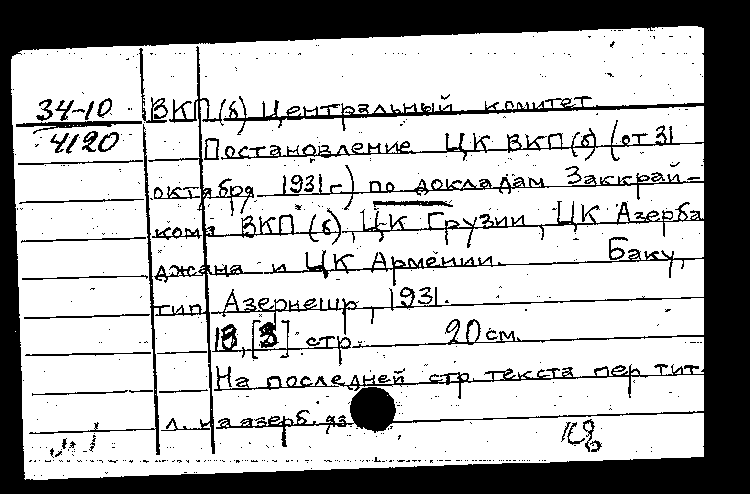 34-10 ВКП(б) Центральный комитет
4120 Постановление ЦК ВКП(б) (от 31
октября 1931 г.) по докладам Заккрай-
кома ВКП(б), ЦК Грузии, ЦК Азерба
джана и ЦК Армении. Баку,
тип. Азернешр, 1931.
18, [3] стр. 20 см.
На последней стр. текста пер. тит.
л. на азерб. яз.